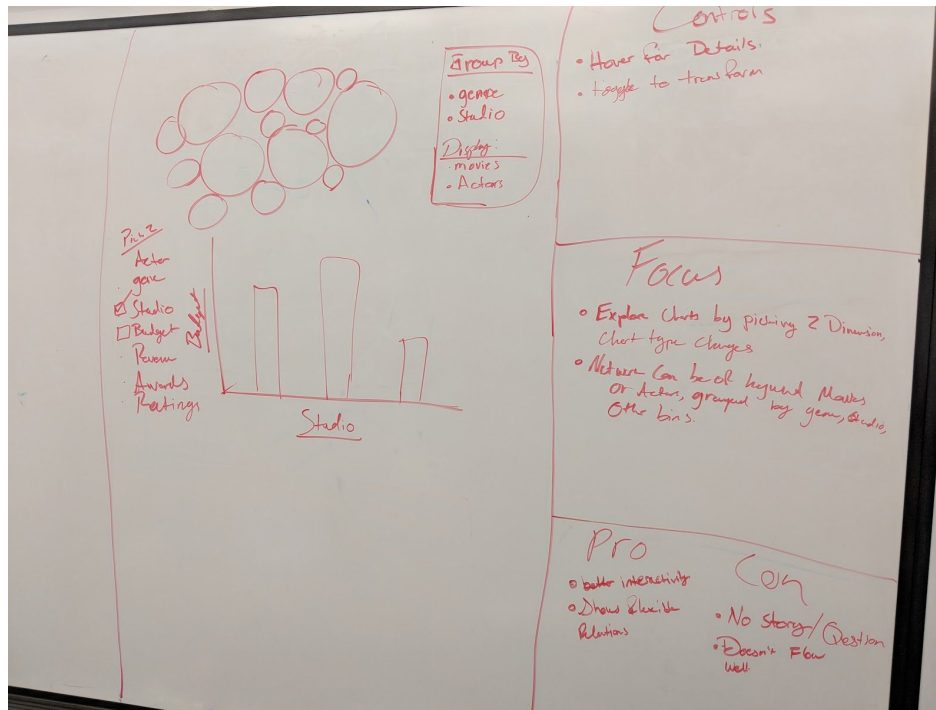 Group By
• genre
• Studio
Display:
• movies
• Actors
Pick 2
Actor
Studio
Budget
Revenu
Awards
Ratings
Budget
Studio
Controls
• Hover for Details.
• toggle to transform
Focus
• Explore Charts by picking 2 Dimension,
Chart type Changes
• Network Can be of Movies
Or Actors, grouped by genre, Studio,
Other bins.
Pro
• better interactivity
• Shows
Relations
Con
• No Story/Question
• Doesn't Flow
Well